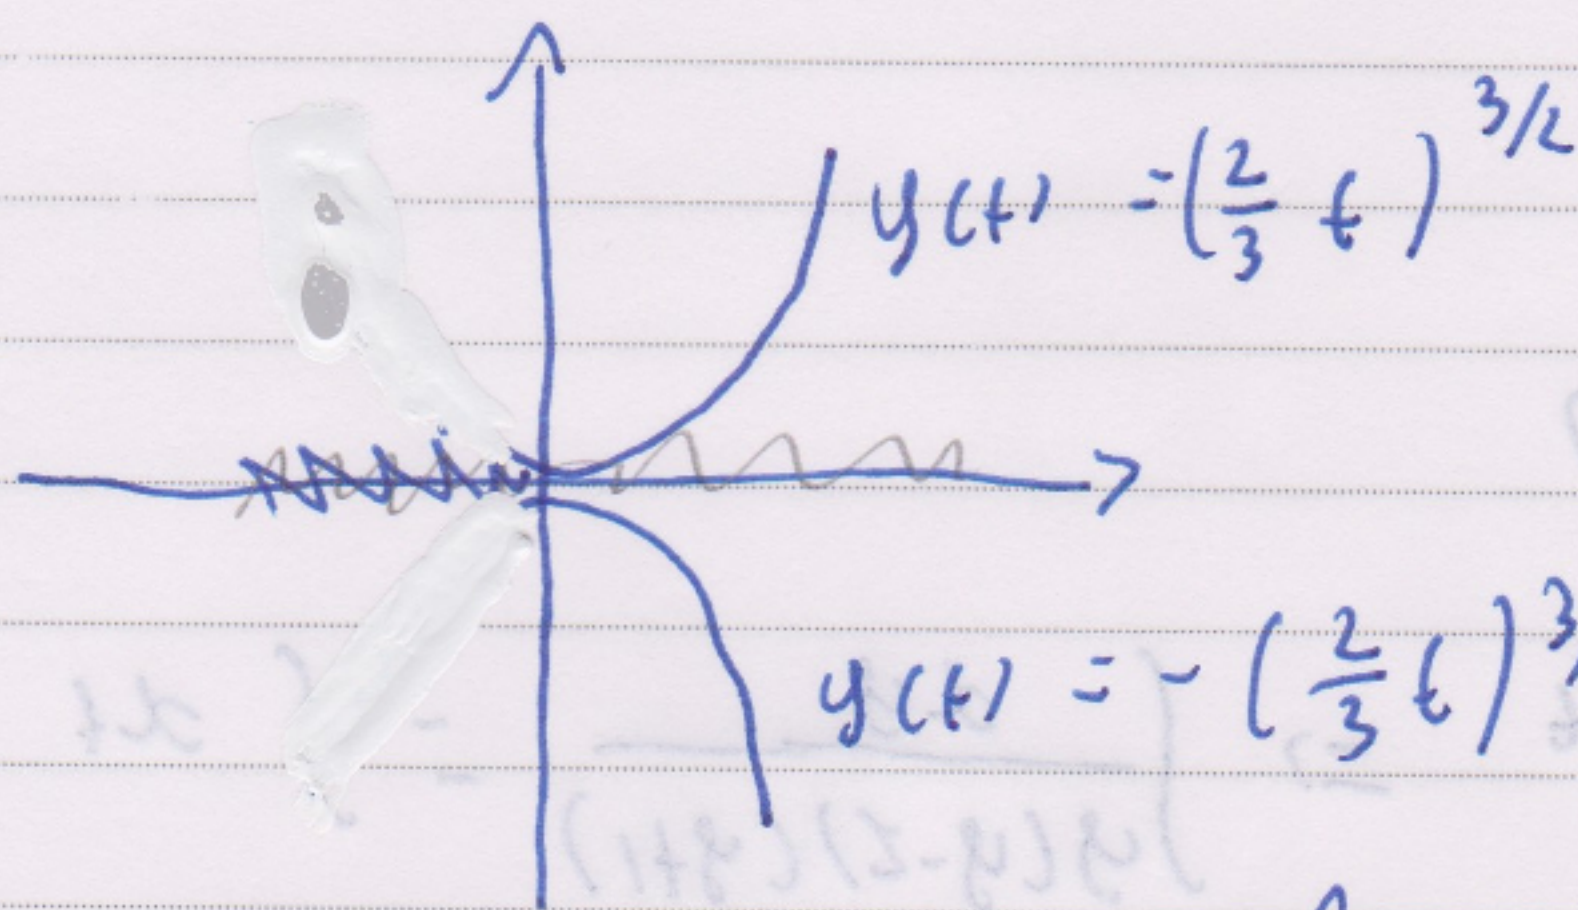 y(t) = (2/3 t)^3/2
y(t) = - (2/3 t)^3/